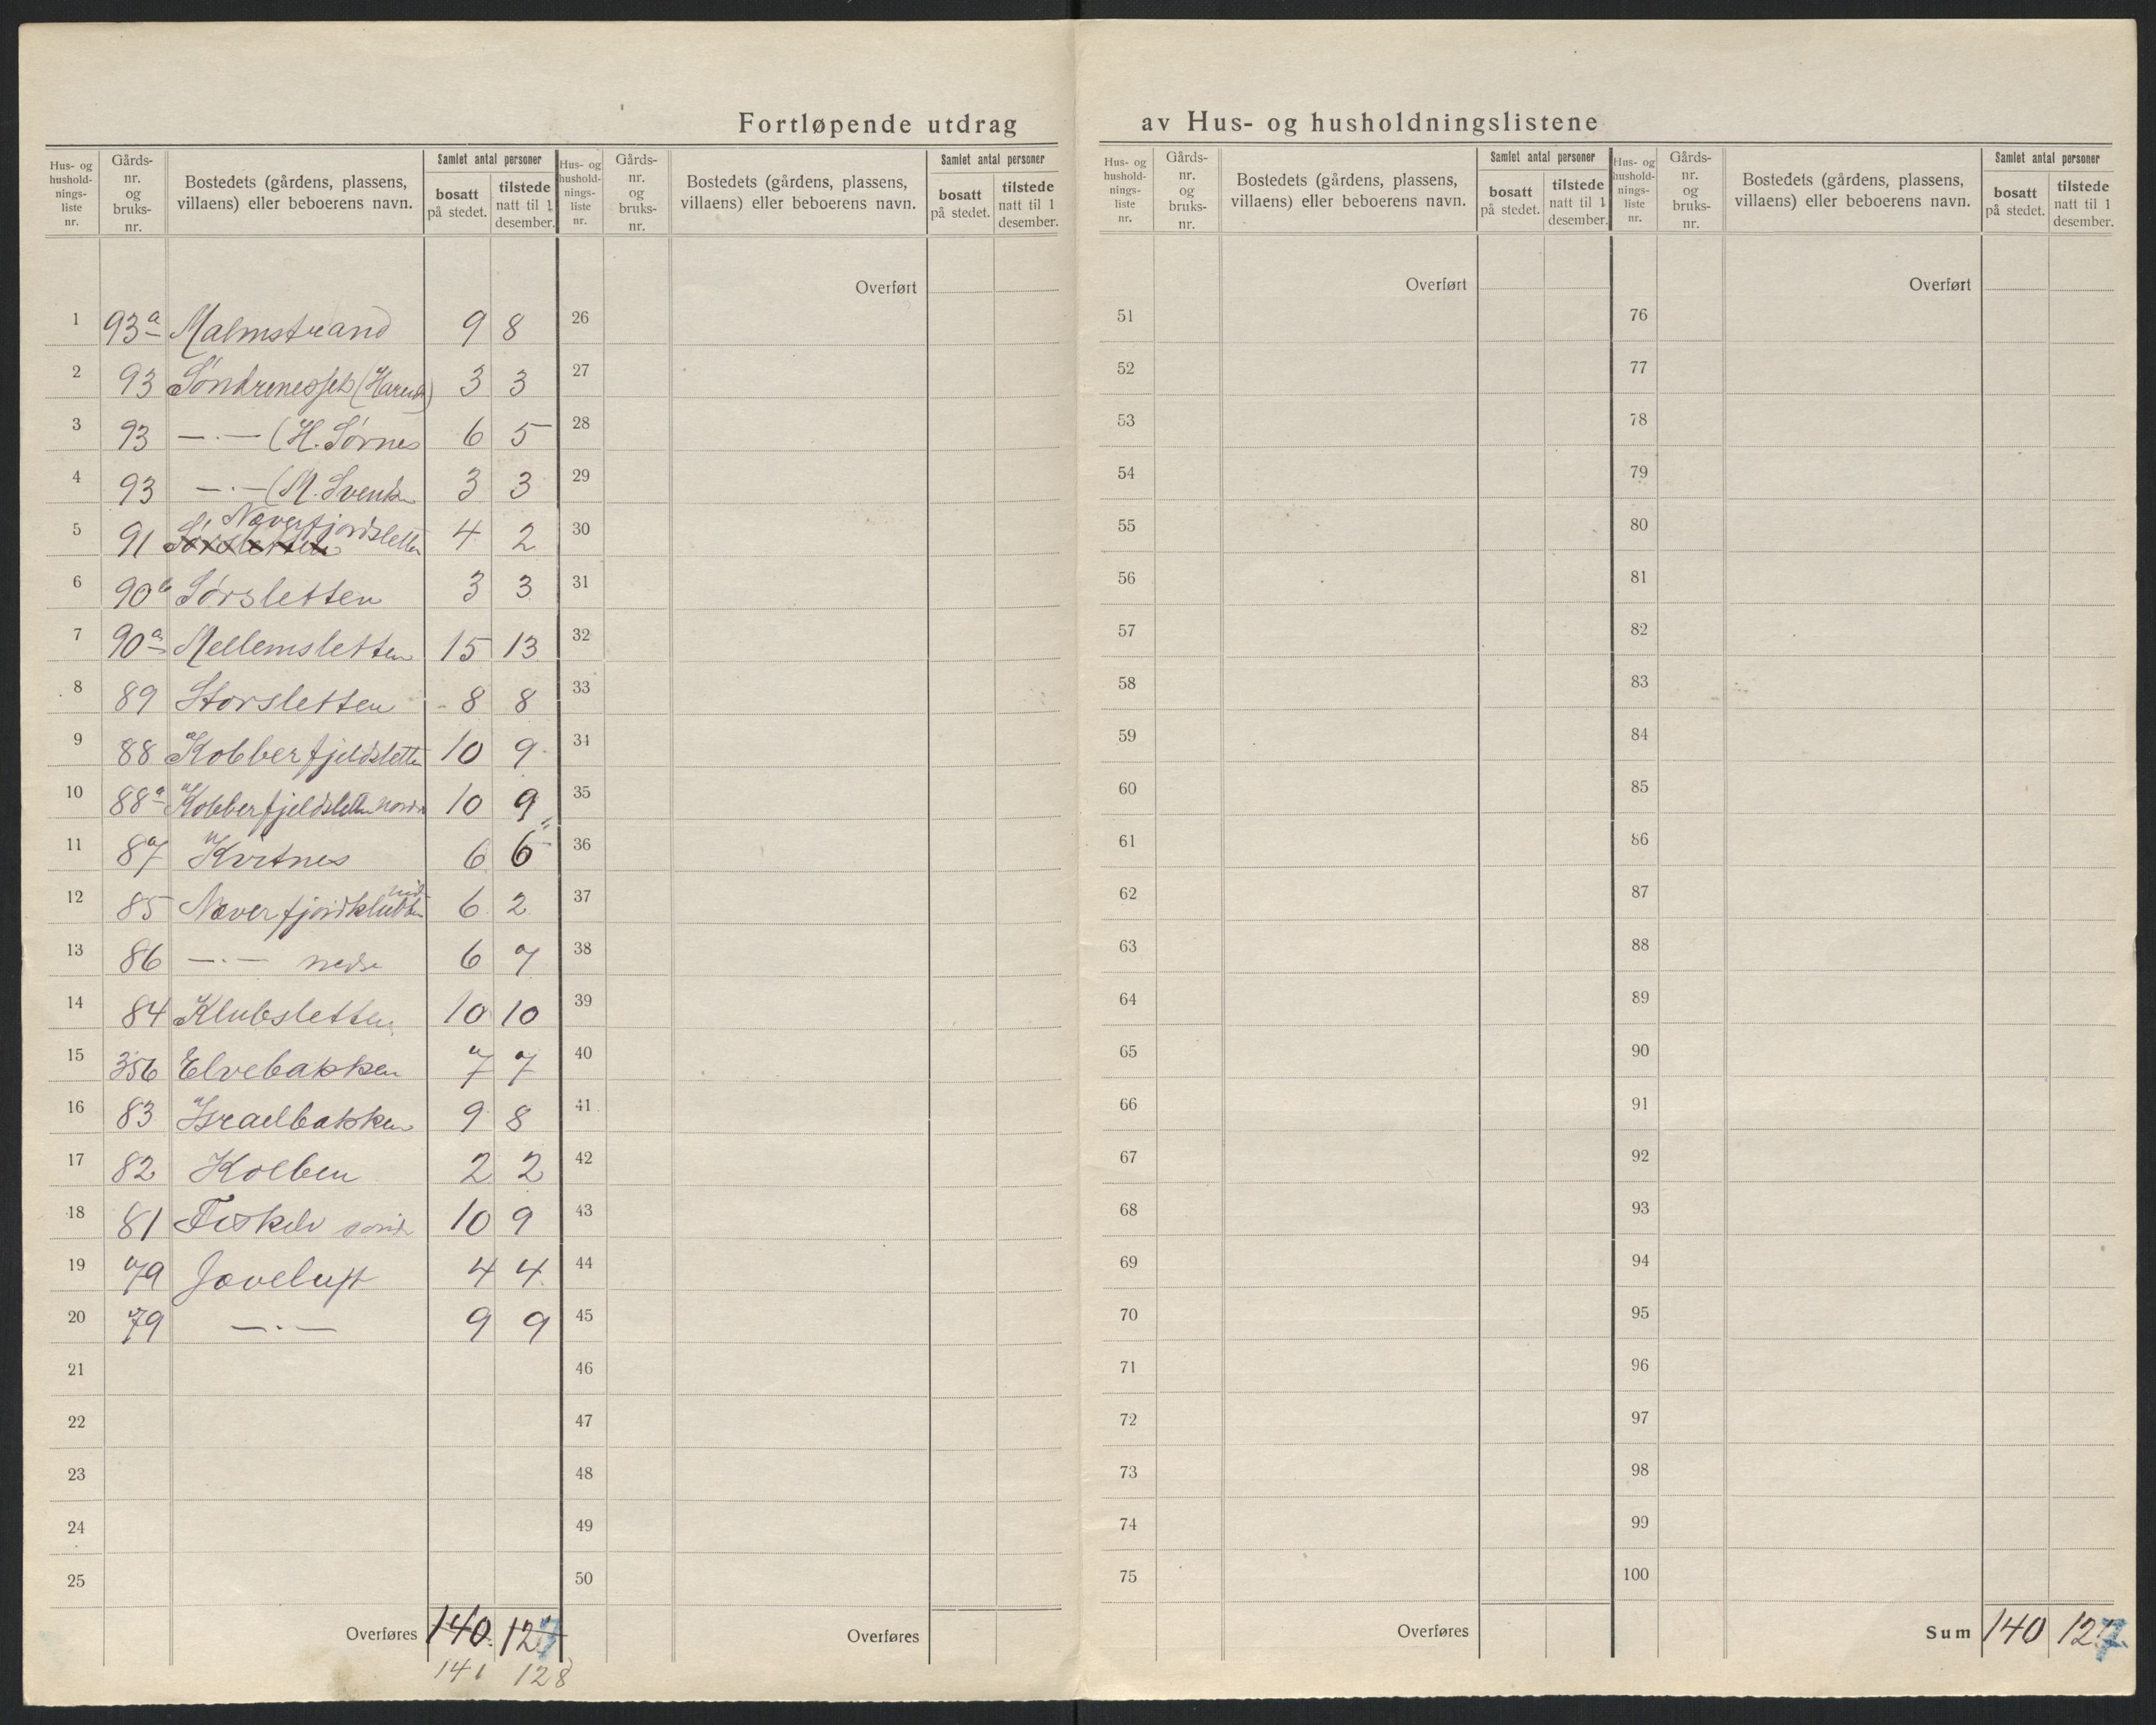 Fortløpende utdrag av Hus- og husholdningslistene
Hus- og hushold- nings- liste nr. | Gårds- nr. og bruks- nr. | Bostedets (gårdens, plassens, villaens) eller beboerens navn. | Samlet antal personer | bosatt på stedet. | tilstede natt til 1 desember.
Hus- og hushold- nings- liste nr. | Gårds- nr. og bruks- nr. | Bostedets (gårdens, plassens, villaens) eller beboerens navn. | Samlet antal personer | bosatt på stedet. | tilstede natt til 1 desember.
Hus- og hushold- nings- liste nr. | Gårds- nr. og bruks- nr. | Bostedets (gårdens, plassens, villaens) eller beboerens navn. | Samlet antal personer | bosatt på stedet. | tilstede natt til 1 desember.
Hus- og hushold- nings- liste nr. | Gårds- nr. og bruks- nr. | Bostedets (gårdens, plassens, villaens) eller beboerens navn. | Samlet antal personer | bosatt på stedet. | tilstede natt til 1 desember.
1 93a Malmstrand 9 8
2 93 3 3
3 93 —·— (H. Sørnes 6 5
4 93 —·— (M. 3 3
5 91 Sørsletten Næverfjordsletten 4 2
6 90b Sørsletten 3 3
7 90a Mellemsletten 15 13
8 89 Storsletten 8 8
9 88 Kobberfjeldsletten 10 9
10 88a Kobberfjeldsletten 10 9
11 87 Kvitnes 6 6
12 85 Næverfjordklubben 6 2
13 86 —·— nedre 6 7
14 84 Klubsletten 10 10
15 356 Elvebakken 7 7
16 83 Israelbakken 9 8
17 82 Kolben 2 2
18 81 Fiskelv 10 9
19 79 Joveluft 4 4
20 79 —·— 9 9
21
22
23
24
25
Overføres 140 127
141 128
Overført
26
27
28
29
30
31
32
33
34
35
36
37
38
39
40
41
42
43
44
45
46
47
48
49
50
Overføres
Overført
51
52
53
54
55
56
57
58
59
60
61
62
63
64
65
66
67
68
69
70
71
72
73
74
75
Overføres
Overført
76
77
78
79
80
81
82
83
84
85
86
87
88
89
90
91
92
93
94
95
96
97
98
99
100
Sum 140 127